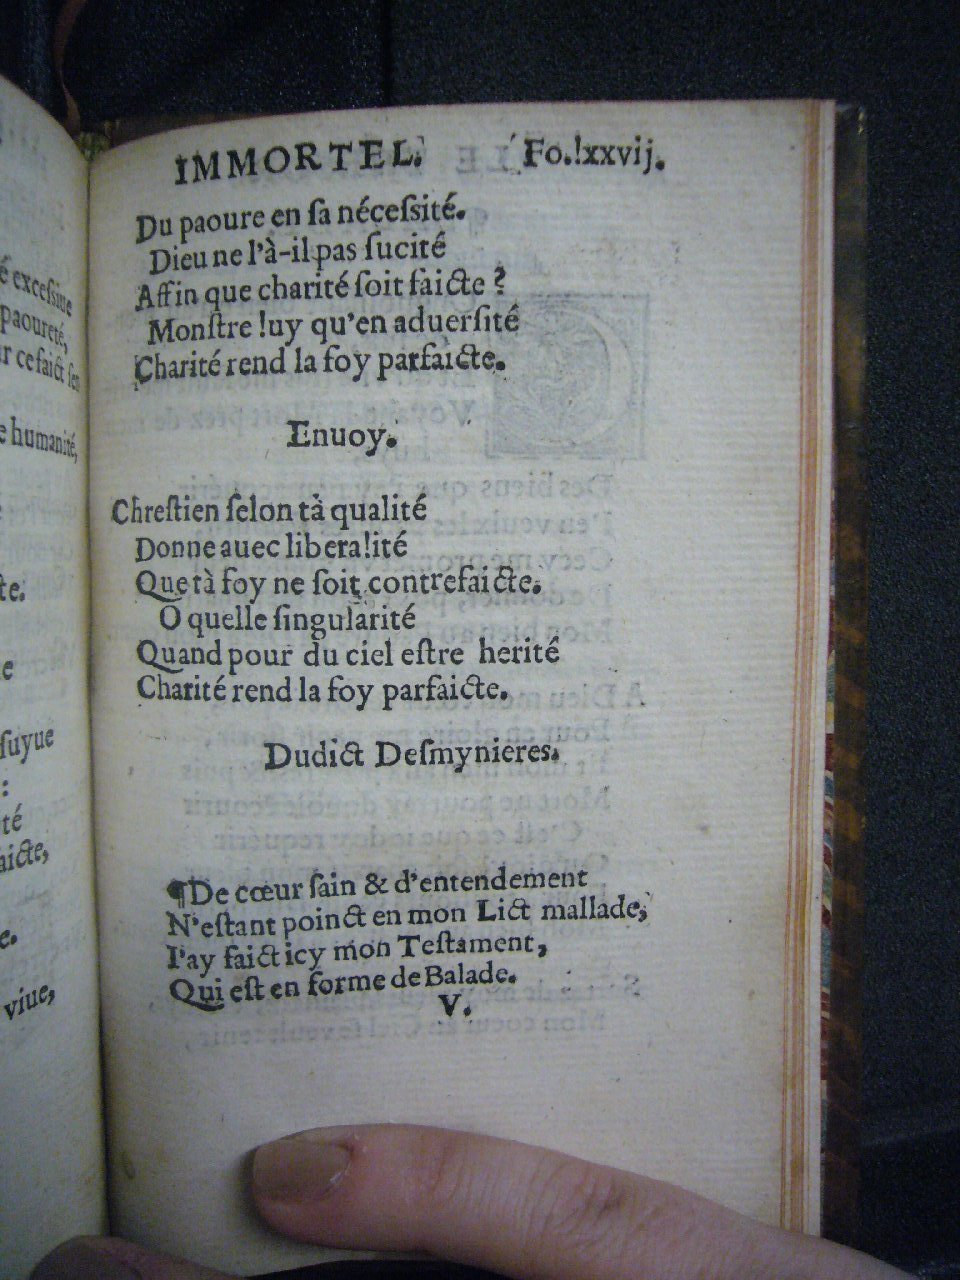 é excessiue
paoureté,
r ce faict s'en
e humanité,
te.
e
suyue
:
té
aicte,
e.
viue,
IMMORTEL. Fo.lxxvij.
Du paoure en sa nécessité.
Dieu ne l'à-il pas sucité
Affin que charité soit faicte?
Monstre luy qu'en aduersité
Charité rend la foy parfaicte.
Enuoy.
Chrestien selon tà qualité
Donne auec liberalité
Que tà foy ne soit contrefaicte.
O quelle singularité
Quand pour du ciel estre herité
Charité rend la foy parfaicte.
Dudict Desmynieres.
¶De cœur sain & d'entendement
N'estant poinct en mon Lict mallade,
I'ay faict icy mon Testament,
Qui est en forme de Balade.
V.